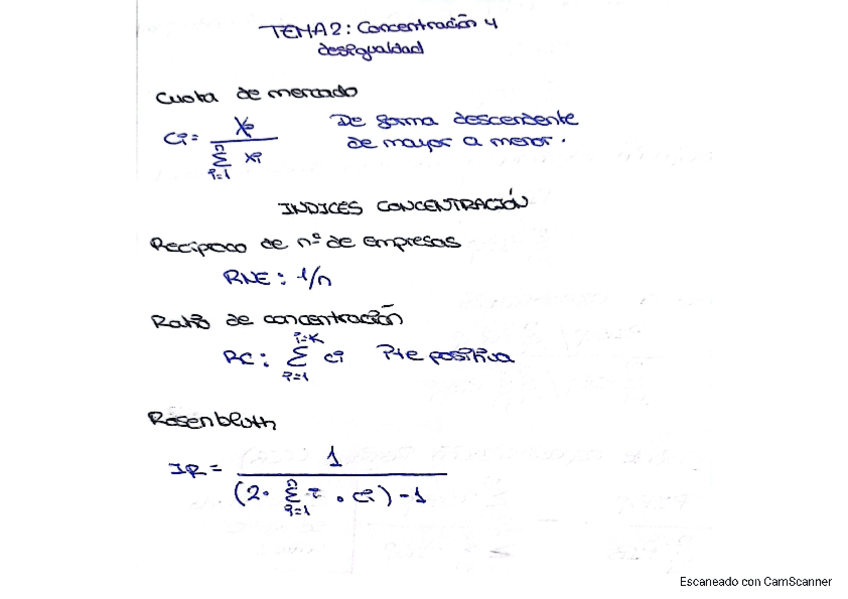 TEMA 2: Concentración y
desigualdad
Cuota de mercado
Ci = Xi / Σ i=1 n xi De forma descendente
de mayor a menor.
INDICES CONCENTRACIÓN
Recíproco de nº de empresas
RNE: 1/n
Ratio de concentración
RC: Σ i=1 i=K ci Pte positiva
Rosenbluth
IR = 1 / (2 · Σ i=1 n i · ci) - 1
Escaneado con CamScanner